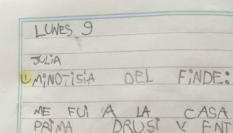 LUNES 9
JULIA
① MI NOTISIA DEL FINDE:
ME FUI A LA CASA
PRIMA DRUSI Y ENT